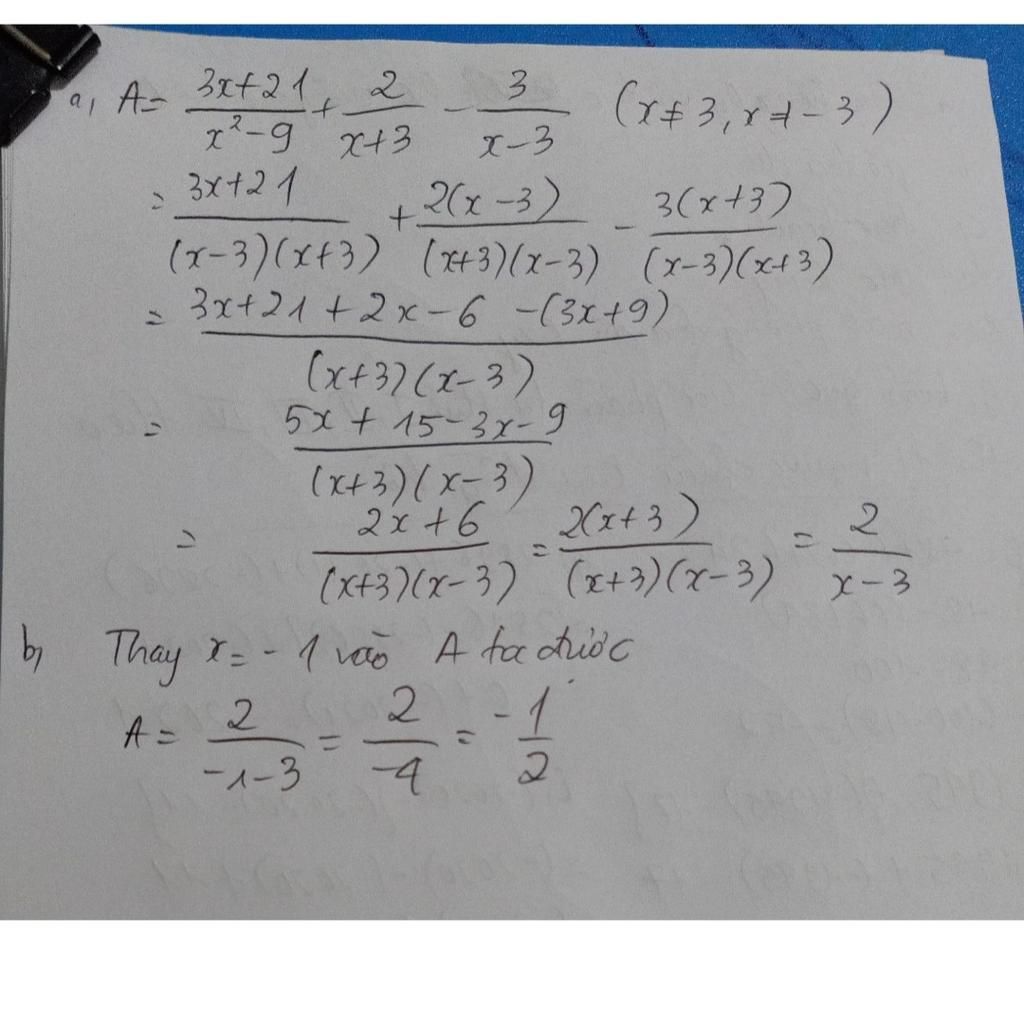 a, A = \frac{3x+21}{x^2-9} + \frac{2}{x+3} - \frac{3}{x-3} (x ≠ 3, x ≠ -3)
= \frac{3x+21}{(x-3)(x+3)} + \frac{2(x-3)}{(x+3)(x-3)} - \frac{3(x+3)}{(x-3)(x+3)}
= \frac{3x+21+2x-6-(3x+9)}{(x+3)(x-3)}
= \frac{5x+15-3x-9}{(x+3)(x-3)}
= \frac{2x+6}{(x+3)(x-3)} = \frac{2(x+3)}{(x+3)(x-3)} = \frac{2}{x-3}
b, Thay x = -1 vào A ta được
A = \frac{2}{-1-3} = \frac{2}{-4} = \frac{-1}{2}